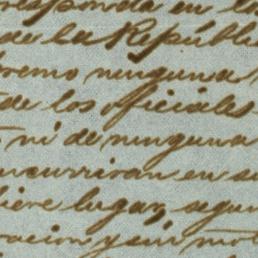 responda en la
de la Repúbli
premo ninguna
de los oficiales
ni de ninguna
ncurriran en su
biere lugar, segun
racion y sin mot